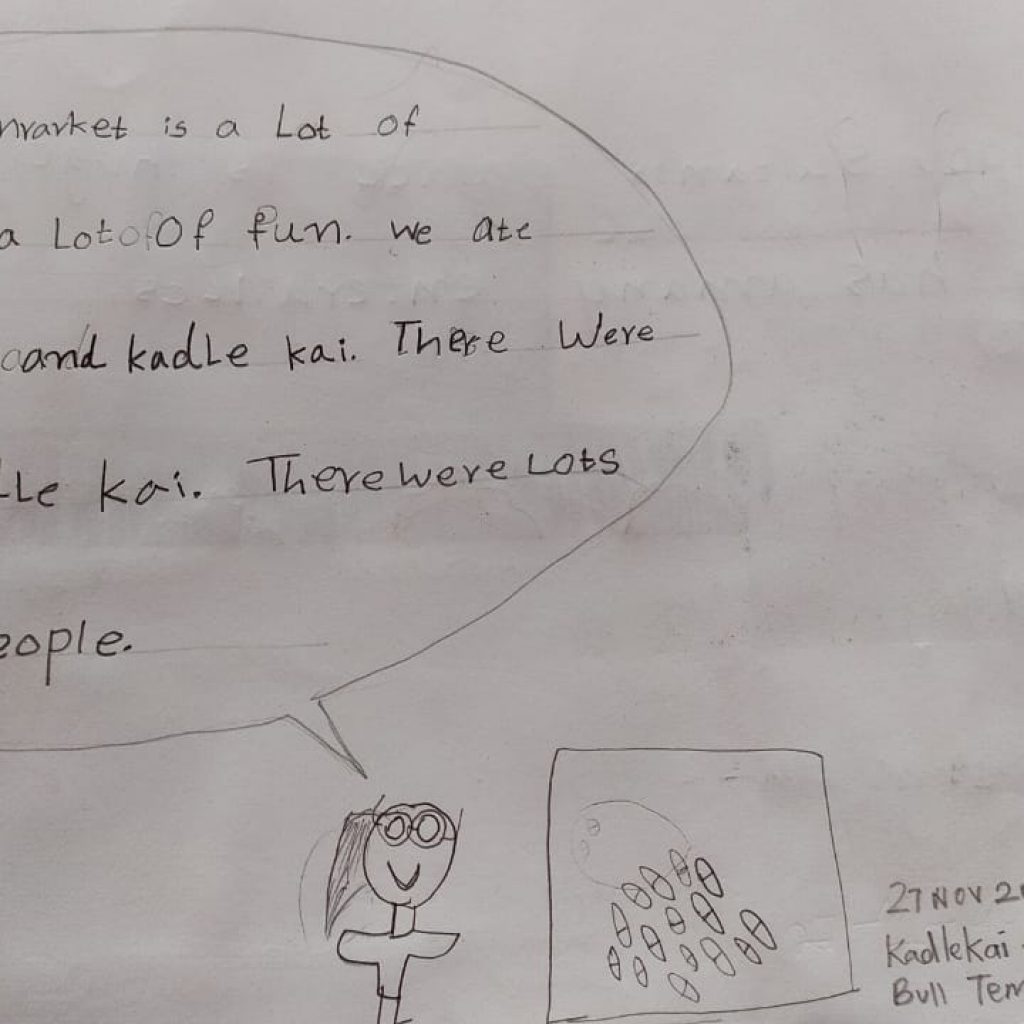 market is a Lot of
a Lot Of fun. we ate
and kadLe kai. There Were
Le kai. There were Lots
eople.
27 NOV 2
Kadlekai
Bull Tem